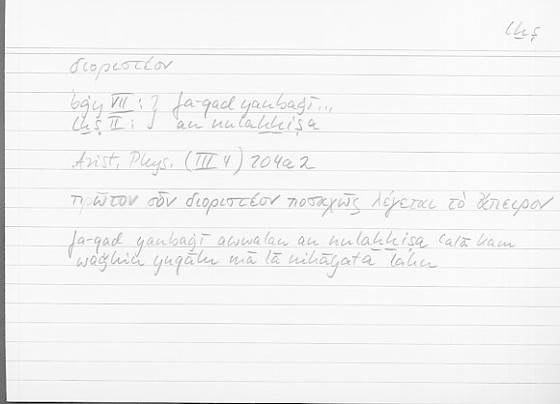 lḫṣ
διοριστέον
bġy VII : } fa-qad yanbaġī ...
lḫṣ II : } an nulaḫḫiṣa
Arist. Phys. (III 4) 204a2
πρῶτον οὖν διοριστέον ποσαχῶς λέγεται τὸ ἄπειρον
fa-qad yanbaġī awwalan an nulaḫḫiṣa ʿalā kam
waǧhin yuqālu mā lā nihāyata lahu